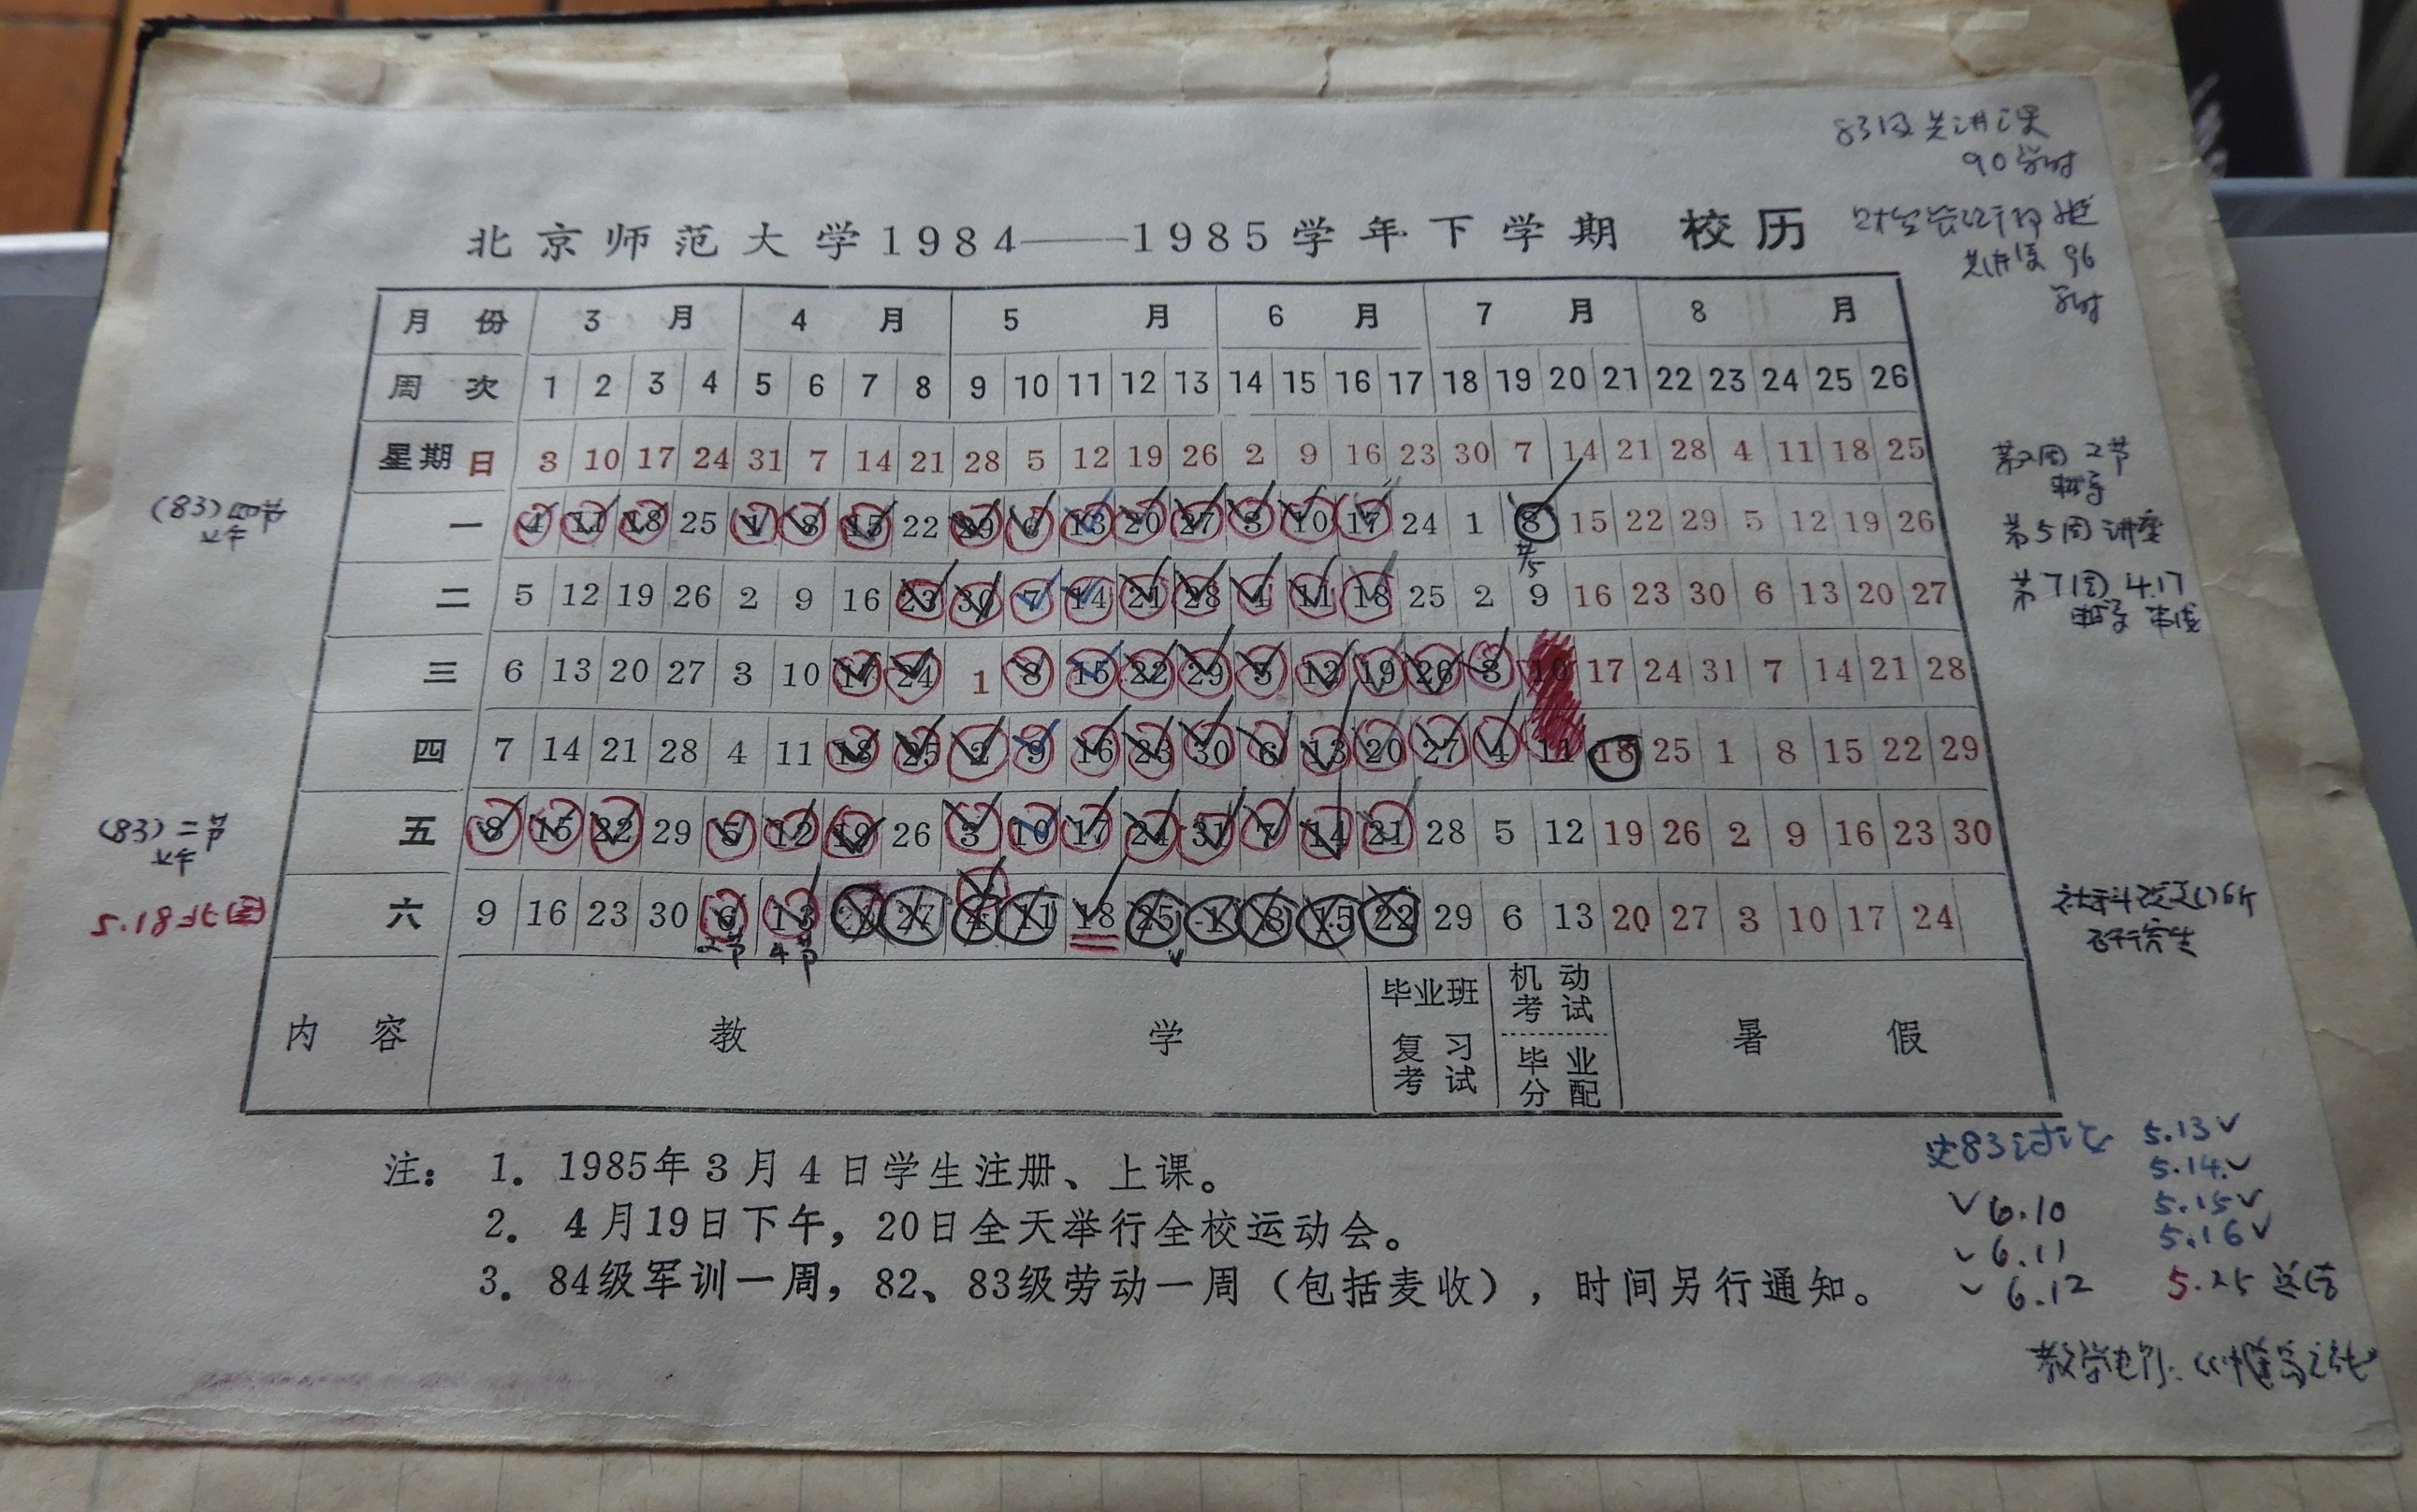 83级共讲课
90学时
共讲课 96
学时
北京师范大学1984——1985学年下学期 校历
月份 3月 4月 5月 6月 7月 8月
周次 1 2 3 4 5 6 7 8 9 10 11 12 13 14 15 16 17 18 19 20 21 22 23 24 25 26
星期日 3 10 17 24 31 7 14 21 28 5 12 19 26 2 9 16 23 30 7 14 21 28 4 11 18 25
第2周 2节
(83)四节
上午
一 4 11 18 25 1 8 15 22 29 6 13 20 27 3 10 17 24 1 8 15 22 29 5 12 19 26
第5周 讲座
二 5 12 19 26 2 9 16 23 30 7 14 21 28 4 11 18 25 2 9 16 23 30 6 13 20 27
第7周 4.17
三 6 13 20 27 3 10 17 24 1 8 15 22 29 5 12 19 26 3 10 17 24 31 7 14 21 28
四 7 14 21 28 4 11 18 25 2 9 16 23 30 6 13 20 27 4 11 18 25 1 8 15 22 29
(83)二节
上午
五 8 15 22 29 5 12 19 26 3 10 17 24 31 7 14 21 28 5 12 19 26 2 9 16 23 30
5.18北图
六 9 16 23 30 6 13 20 27 4 11 18 25 1 8 15 22 29 6 13 20 27 3 10 17 24
2节 4节
研究生
内容 教学 毕业班复习考试 机动考试 毕业分配 暑假
注：1．1985年3月4日学生注册、上课。
2．4月19日下午，20日全天举行全校运动会。
3．84级军训一周，82、83级劳动一周（包括麦收），时间另行通知。
史83讨论 5.13✓
5.14✓
✓6.10 5.15✓
✓6.11 5.16✓
✓6.12 5.25 总结